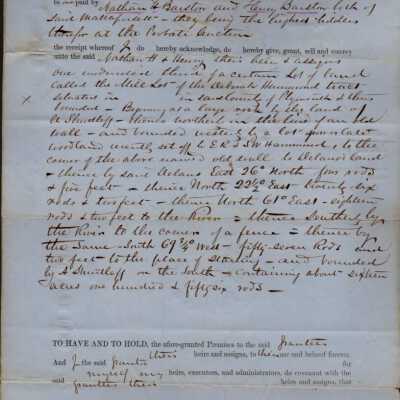 to me paid by Nathan H Barstow and Henry Barstow both of
said Mattapoisett – they being the highest bidders
therefor at the Probate Auction
the receipt whereof I do hereby acknowledge, do hereby give, grant, sell and convey
unto the said Nathan H & Henry their heirs & assigns
one undivided third of a certain Lot of Land
called the Mill Lot of the Deborah Hammond tract
situated in in said County of Plymouth & thus
bounded – Begining at a large rock by the land of
S. Shurtleff – thence northerly in the line of an old
wall – and bounded westerly by a lot
woodland recently set off to E R & S W Hammond, to the
corner of the above named old wall to Delano's Land
– thence by said Delano East 26° North four rods
& five feet – thence North 22½° East – twenty six
rods & two feet – thence North 61° East – eighteen
rods & two feet to the River – thence Southerly by
the River to the corner of a fence – thence by
the Same – South 69¾° West – fifty-seven Rods and
two feet to the place of starting – and bounded
by S Shurtleff on the South – containing about sixteen
acres one hundred & fifty six rods –
TO HAVE AND TO HOLD, the afore-granted Premises to the said grantees
their heirs and assigns, to their use and behoof forever.
And I the said grantor for
myself my heirs, executors, and administrators, do covenant with the
said grantees their heirs and assigns, that